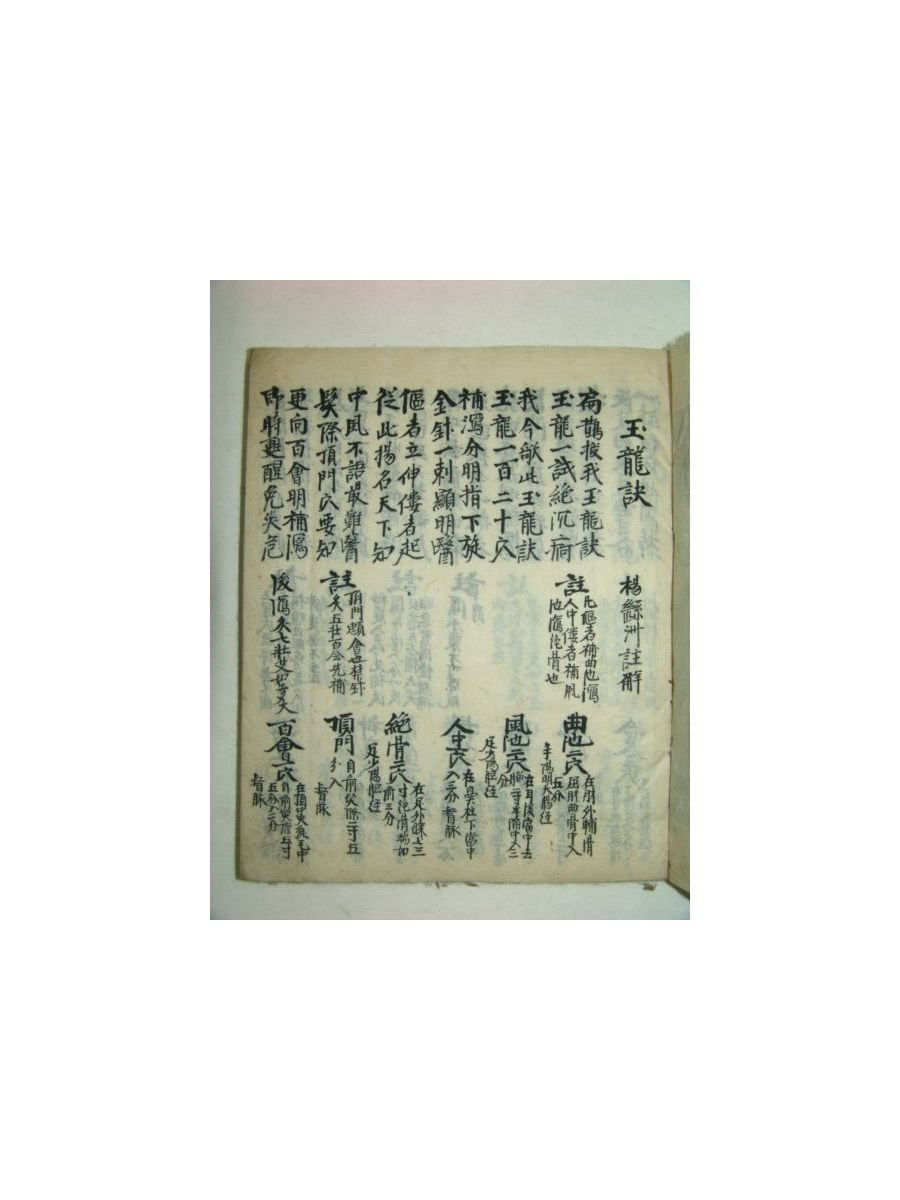 玉龍訣　楊繼洲註解
扁鵲授我玉龍訣
玉龍一試絶沉痾
我今歌此玉龍訣
玉龍一百二十穴
補瀉分明指下旋
金針一刺顯明醫
傴者立伸僂者起
從此揚名天下知
中風不語最難醫
髪際頂門穴要知
更向百會明補瀉
即時甦醒免災危
註
凡傴者補曲池瀉
人中僂者補風
池瀉絶骨也
註
頂門
會也禁針
灸五壮百會先補
後瀉灸七壮艾如麥大
曲池二穴
在肘外輔骨
屈肘曲骨中入
五分
手陽明大腸経
風池二穴
在耳後
分
足少陽胆経
人中一穴
在鼻柱下當中
入三分督脉
絶骨二穴
在足外踝上三
寸絶骨端如
前三分
足少陽胆経
頂門
自前髪際二寸五
分入
督脉
百會一穴
在頂中央旋毛中
自前髪際五寸
五分入二分
督脉